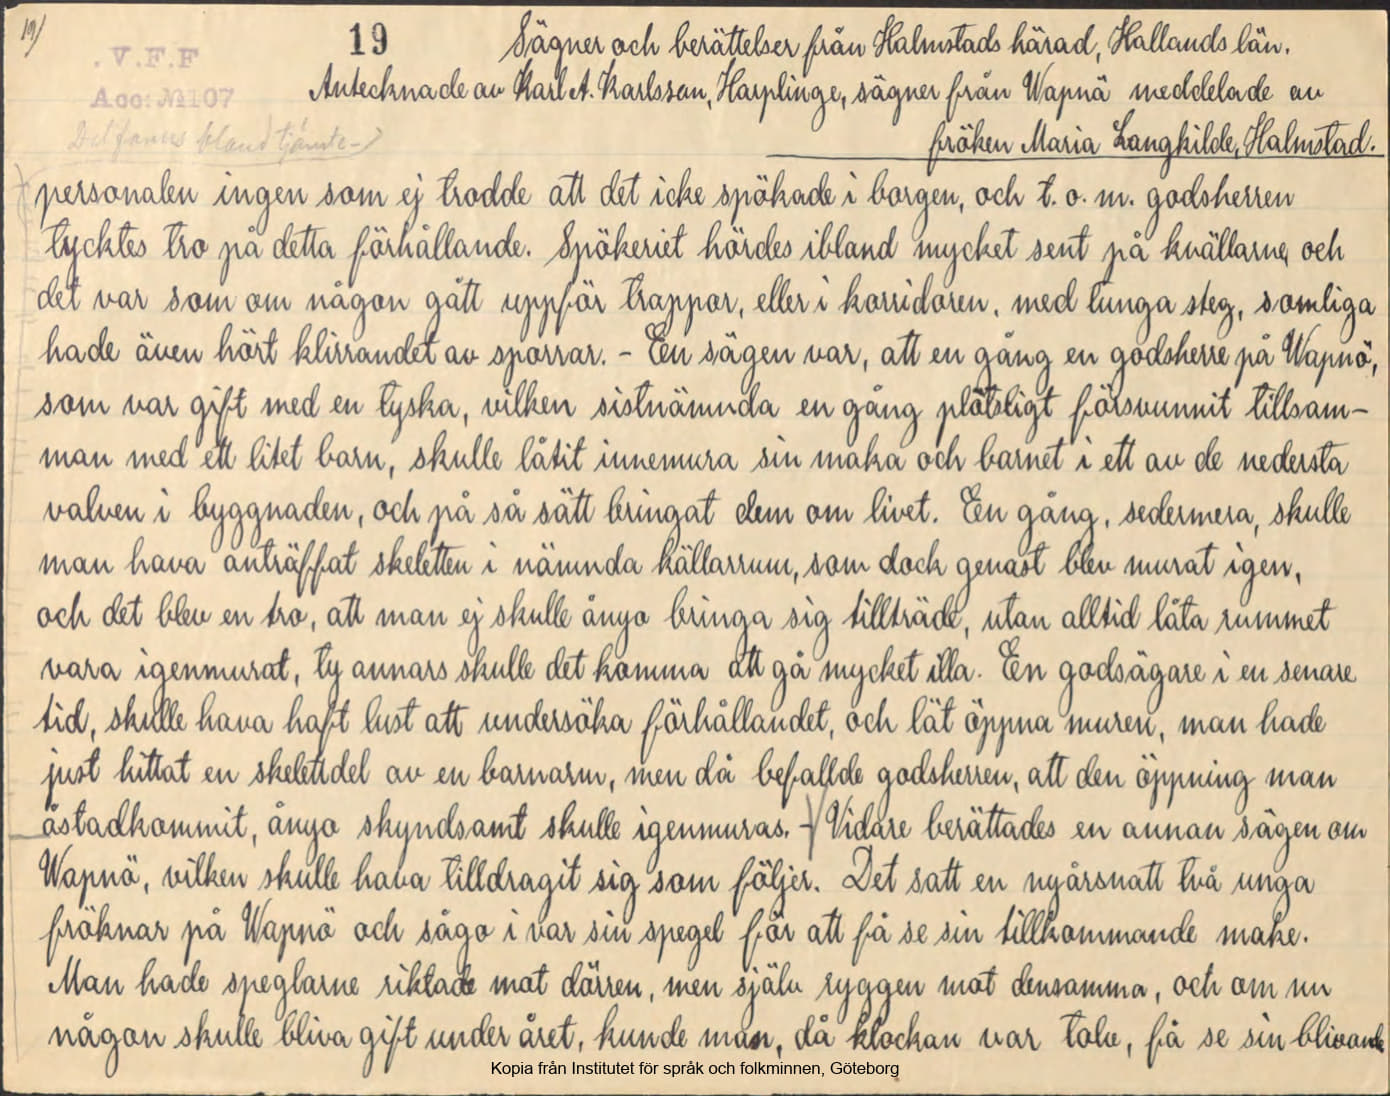 19/
19
Sägner och berättelser från Halmstads härad, Hallands län.
V.F.F
Acc: № 107
Antecknade av Karl A. Karlsson, Harplinge, sägner från Wapnö meddelade av
Det fanns bland tjänste-
fröken Maria Langkilde, Halmstad.
personalen ingen som ej trodde att det icke spökade i borgen, och t. o. m. godsherren
tycktes tro på detta förhållande. Spökeriet hördes ibland mycket sent på kvällarne, och
det var som om någon gått uppför trappor, eller i korridoren, med tunga steg, somliga
hade även hört klirrandet av sporrar. - En sägen var, att en gång en godsherre på Wapnö,
som var gift med en tyska, vilken sistnämnda en gång plötsligt försvunnit tillsam-
man med ett litet barn, skulle låtit innemura sin maka och barnet i ett av de nedersta
valven i byggnaden, och på så sätt bringat dem om livet. En gång, sedermera, skulle
man hava anträffat skeletten i nämnda källarrum, som dock genast blev murat igen,
och det blev en tro, att man ej skulle ånyo bringa sig tillträde, utan alltid låta rummet
vara igenmurat, ty annars skulle det komma att gå mycket illa. En godsägare i en senare
tid, skulle hava haft lust att undersöka förhållandet, och lät öppna muren, man hade
just hittat en skelettdel av en barnarm, men då befallde godsherren, att den öppning man
åstadkommit, ånyo skyndsamt skulle igenmuras. - Vidare berättades en annan sägen om
Wapnö, vilken skulle hava tilldragit sig som följer. Det satt en nyårsnatt två unga
fröknar på Wapnö och sågo i var sin spegel för att få se sin tillkommande make.
Man hade speglarne riktade mot dörren, men själv ryggen mot densamma, och om nu
någon skulle bliva gift under året, kunde man, då klockan var tolv, få se sin blivande
Kopia från Institutet för språk och folkminnen, Göteborg